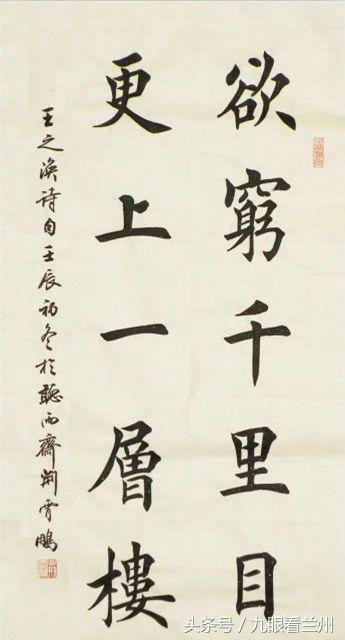 欲窮千里目
更上一層樓
王之渙詩句壬辰初冬於聽雨齋荆霄鵬
头条号 / 九眼看兰州